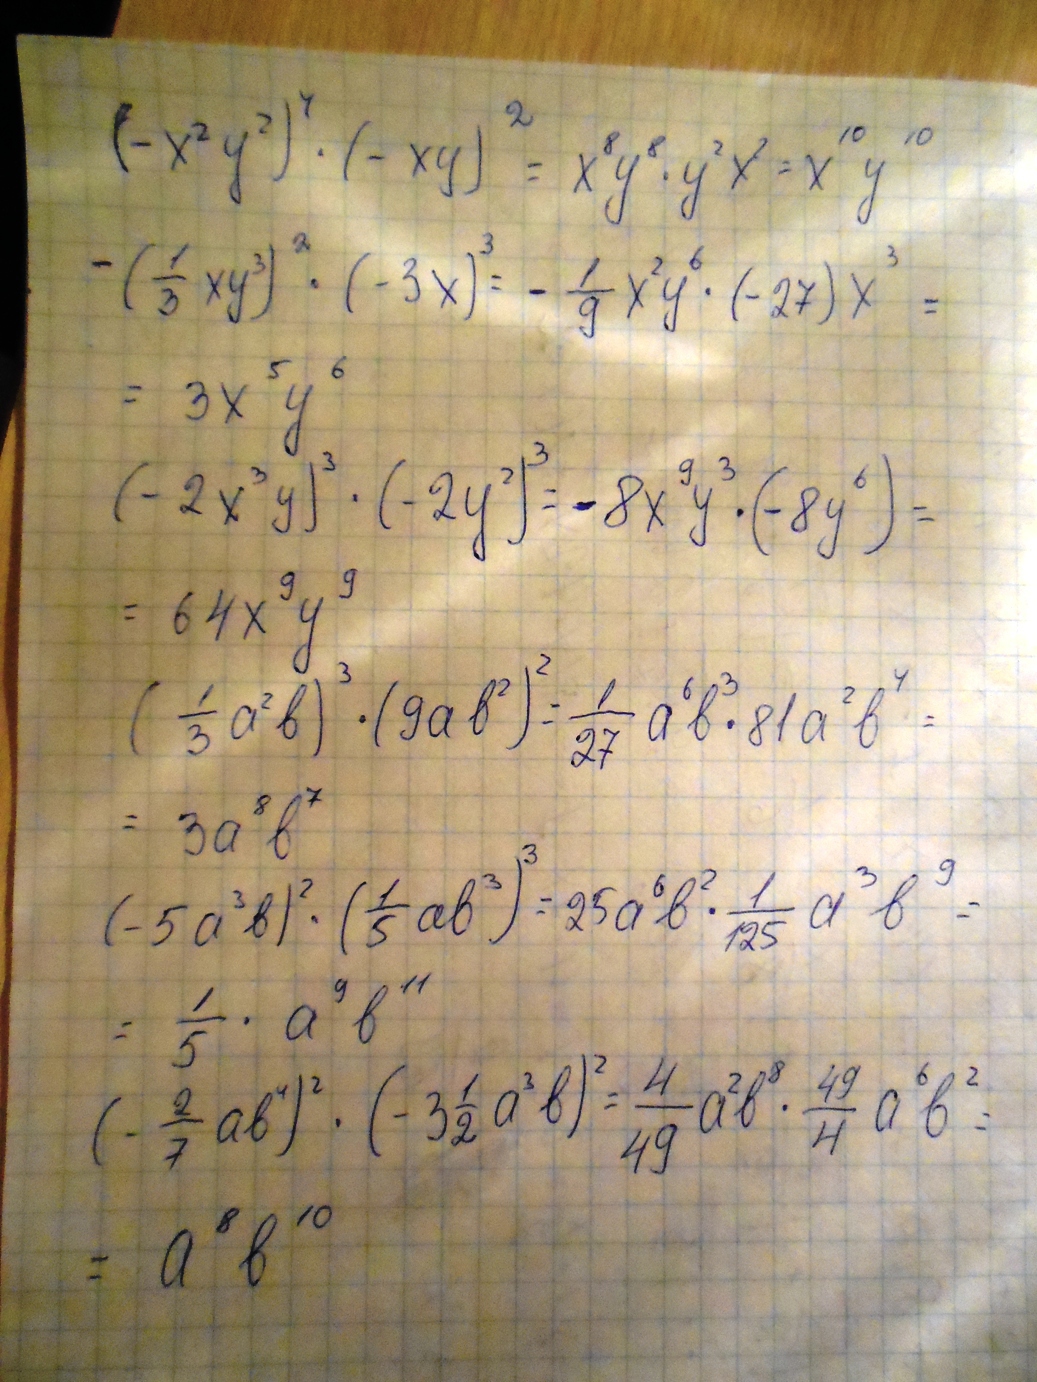 (-x²y²)⁴ · (-xy)² = x⁸y⁸ · y²x² = x¹⁰y¹⁰
-(1/3 xy³)² · (-3x)³ = -1/9 x²y⁶ · (-27)x³ =
= 3x⁵y⁶
(-2x³y)³ · (-2y²)³ = -8x⁹y³ · (-8y⁶) =
= 64x⁹y⁹
(1/3 a²b)³ · (9ab²)² = 1/27 a⁶b³ · 81a²b⁴ =
= 3a⁸b⁷
(-5a³b)² · (1/5 ab³)³ = 25a⁶b² · 1/125 a³b⁹ =
= 1/5 · a⁹b¹¹
(-2/7 ab⁴)² · (-3 1/2 a³b)² = 4/49 a²b⁸ · 49/4 a⁶b² =
= a⁸b¹⁰